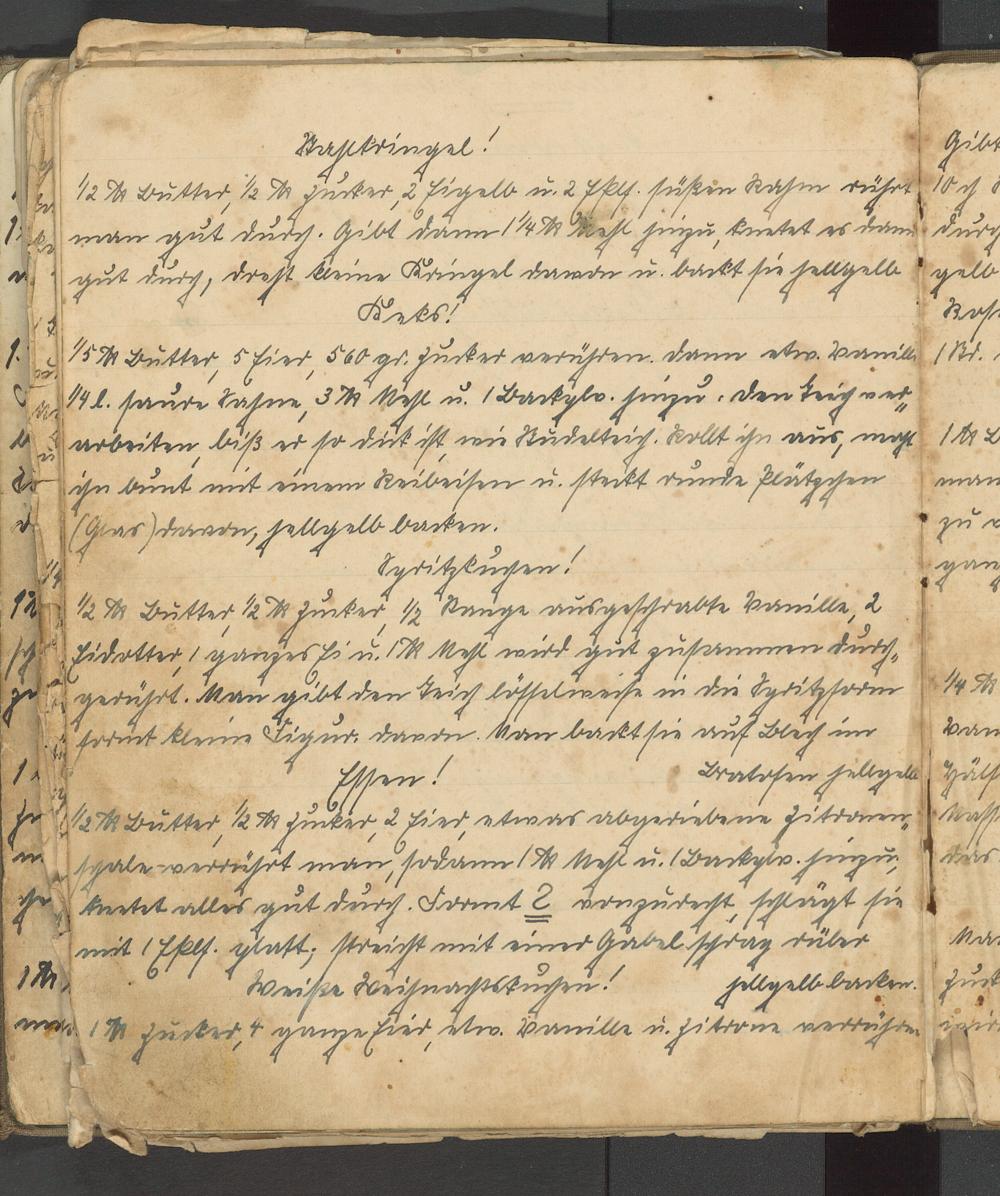 Rahmkringel!
1/2 ℔ Butter, 1/2 ℔ Zucker, 2 Eigelb u. 2 Eßlf. süßen Rahm rührt
man gut durch. Gibt dann 1 1/4 ℔ Mehl hinzu, knetet es dann
gut durch, dreht kleine Kringel davon u. backt sie hellgelb
Keks!
1/5 ℔ Butter, 5 Eier, 560 gr. Zucker verühren. Dann etw. Vanille
1/4 l. saure Sahne, 3 ℔ Mehl u. 1 Backplv. hinzu. Den Teich ver-
arbeiten, biß er so dick ist, wie Nudelteich. Rollt ihn aus, macht
ihn bunt mit einem Reibeisen u. steckt runde Plätzchen
(Glas) davon, hellgelb backen.
Spritzkuchen!
1/2 ℔ Butter, 1/2 ℔ Zucker, 1/2 Stange ausgeschrabte Vanille, 2
Eidotter, 1 ganzes Ei u. 1 ℔ Mehl wird gut zusammen durch-
gerührt. Man gibt den Teich lösselweise in die Spritzform
formt kleine Figur. davon. Man backt sie auf Blech im
Essen!
Bratofen hellgelb
1/2 ℔ Butter, 1/2 ℔ Zucker, 2 Eier, etwas abgeriebene Zitronen-
schale verrührt man, sodann 1 ℔ Mehl u. 1 Backplv. hinzu,
knetet alles gut durch. Formt 2 vonzurecht, schlägt sie
mit 1 Eßlf. glatt; streicht mit einer Gabel schräg rüber
hellgelb backen.
Weiße Weihnachtskuchen!
1 ℔ Zucker, 4 ganze Eier, etw. Vanille u. Zitrone verrühren